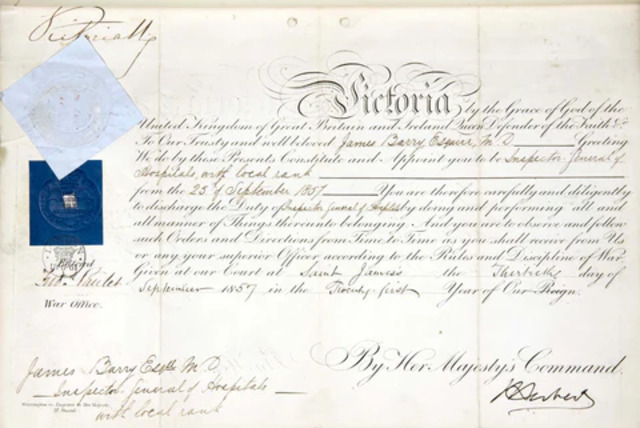 Victoria R
Victoria by the Grace of God of the
United Kingdom of Great Britain and Ireland Queen Defender of the Faith &c
To Our Trusty and well beloved James Barry Esquire M.D Greeting
We do by these Presents Constitute and Appoint you to be Inspector General of
Hospitals, with local rank
from the 25 of September 1857 You are therefore carefully and diligently
to discharge the Duty of Inspector General of Hospitals by doing and performing all and
all manner of Things thereunto belonging. And you are to observe and follow
such Orders and Directions from Time to Time as you shall receive from Us
or any your superior Officer according to the Rules and Discipline of War.
Given at our Court at Saint James's the Thirtieth day of
September 1857 in the Twenty first Year of Our Reign.
War Office.
By Her Majesty's Command.
James Barry Esqre M.D
Inspector General of Hospitals
with local rank